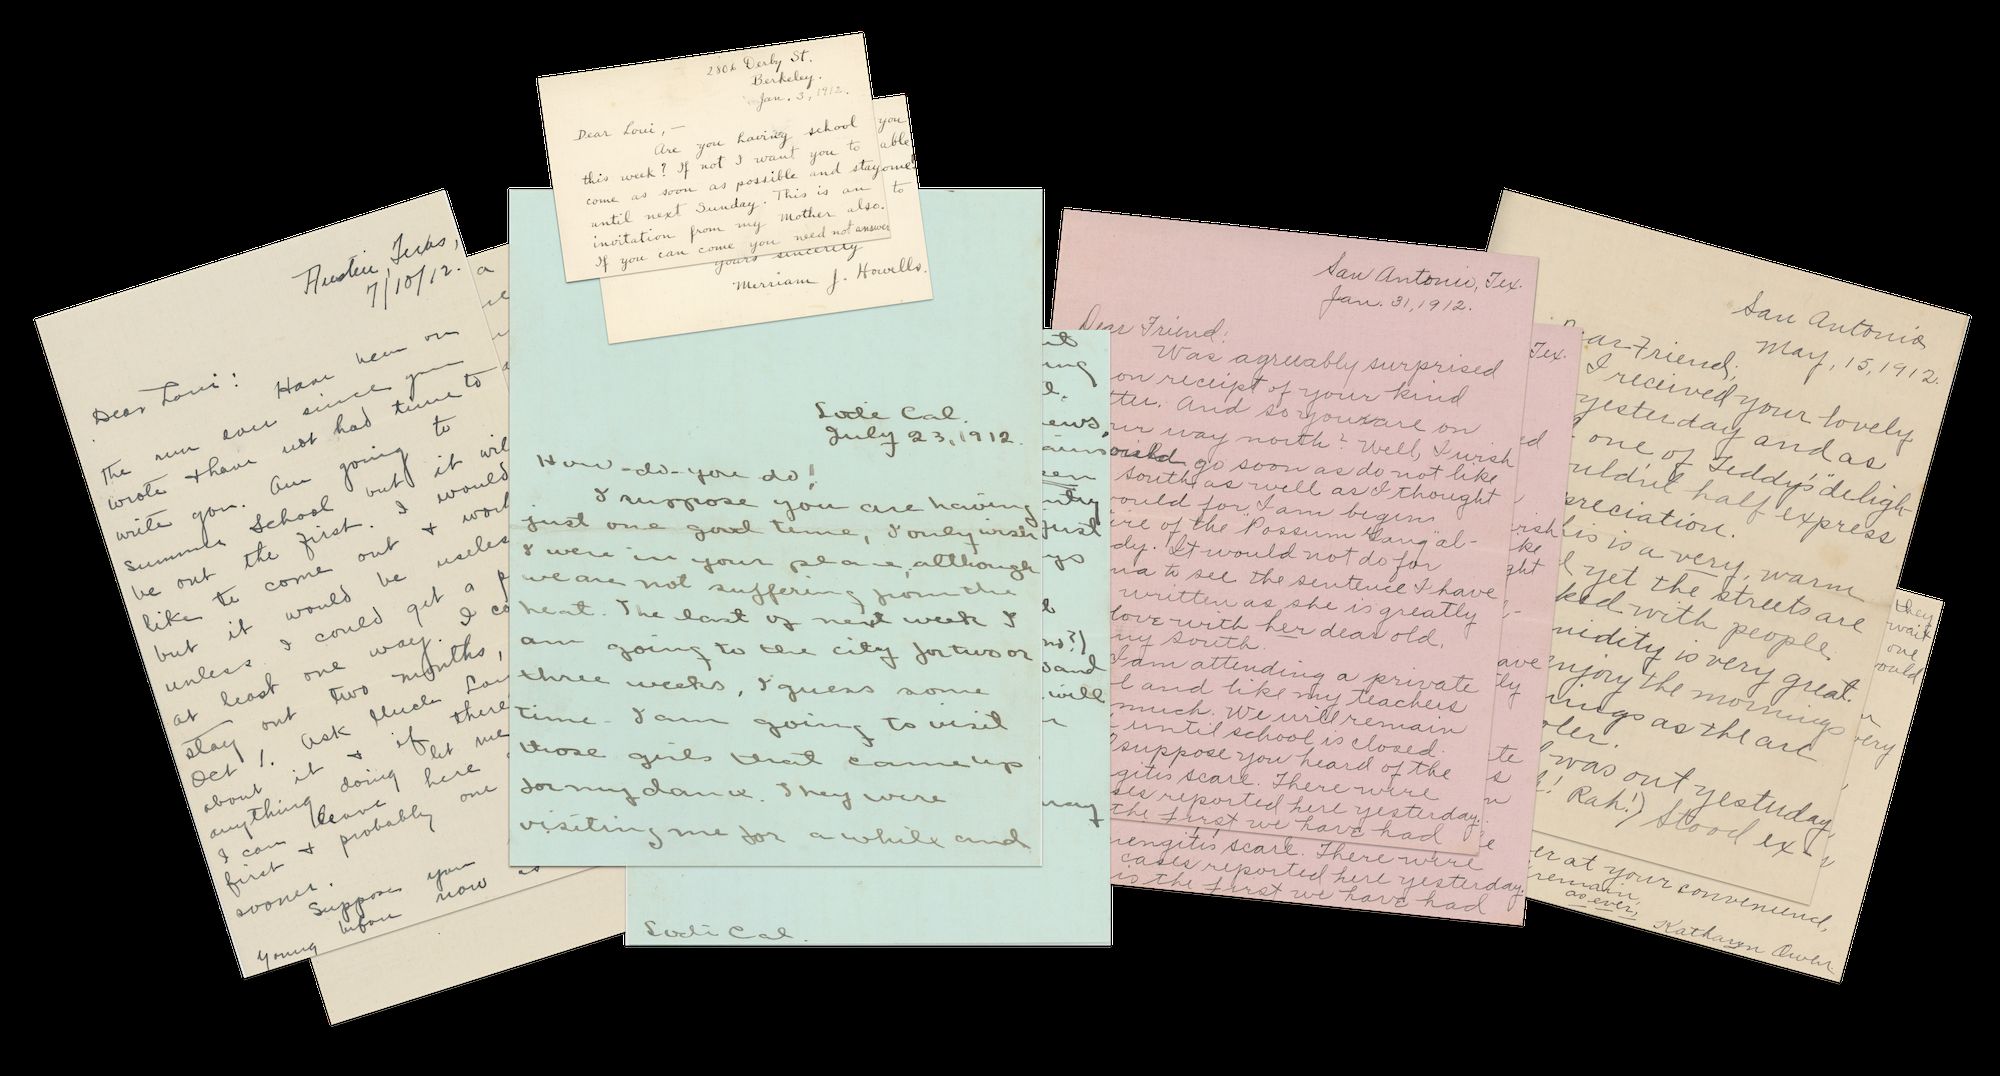 Austin, Texas,
7/10/12.
Dear Loui:
Have been on
the run ever since you
wrote & have not had time to
write you. Am going to
Summer School but it wil
be out the first. I would
like to come out & work
but it would be useless
unless I could get a p
at least one way. I co
stay out two months,
Oct 1. Ask Uncle Lou
about it & if there
anything doing let me
I can leave here
first & probably one
sooner.
Suppose you
young before now
2806 Derby St.
Berkeley.
Jan. 3, 1912.
Dear Loui,—
Are you having school
this week? If not I want you to
come as soon as possible and stay
until next Sunday. This is an
invitation from my Mother also.
If you can come you need not answer
you
able
ome
to
yours sincerely
Merriam J. Howells.
Lodi Cal.
July 23, 1912.
How-do-you do!
I suppose you are having
just one good time, I only wish
I were in your place, although
we are not suffering from the
heat. The last of next week I
am going to the city for two or
three weeks, I guess some
time. I am going to visit
those girls that came up
for my dance. They were
visiting me for a while and
ews,
just
and
will
Lodi Cal.
San Antonio, Tex.
Jan. 31, 1912.
Dear Friend:
Was agreuably surprised
on receipt of your kind
tter. And so you are on
ur way north? Well, I wish
go soon as do not like
south as well as I thought
ould for I am begin
ire of the "Possum Gang" al-
dy. It would not do for
ma to see the sentence I have
written as she is greatly
love with her dear old,
ny south.
I am attending a private
l and like my teachers
much. We will remain
until school is closed.
I suppose you heard of the
gitis scare. There were
ses reported here yesterday.
the first we have had
engitis scare. There were
cases reported here yesterday.
is the first we have had
Tex.
ed
ish
ke
ght
ave
tly
te
San Antonio
May, 15, 1912.
Dear Friend;
I received your lovely
yesterday and as
one of Teddy's "deligh-
ould'nt half express
preciation.
his is a very, warm
yet the streets are
ked with people.
midity is very great.
njoy the mornings
nings as the are
oler.
was out yesterday,
! Rah!) Stood ex-
they
wait
one
ould
very
er at your convenience,
remain,
as ever,
Katharyn Owen